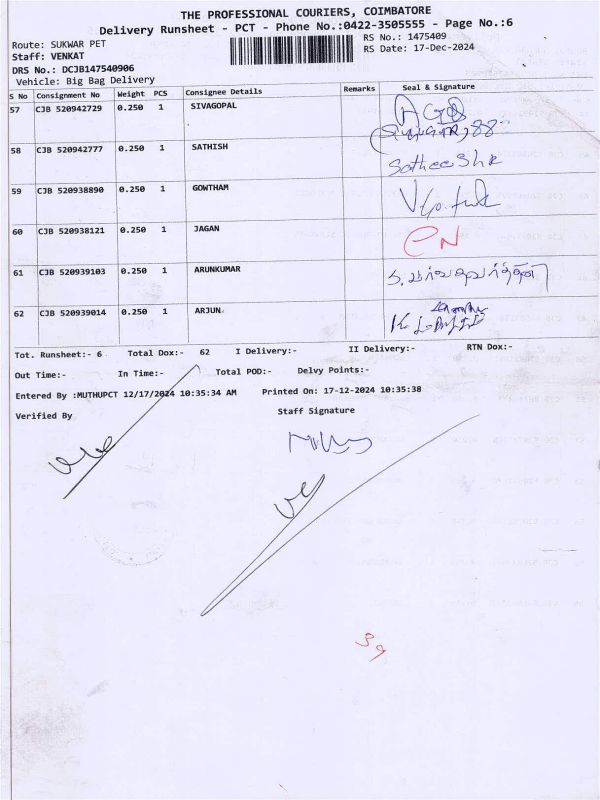 THE PROFESSIONAL COURIERS, COIMBATORE
Delivery Runsheet - PCT - Phone No.:0422-3505555 - Page No.:6
Route: SUKWAR PET
RS No.: 1475409
Staff: VENKAT
RS Date: 17-Dec-2024
DRS No.: DCJB147540906
Vehicle: Big Bag Delivery
S No Consignment No Weight PCS Consignee Details Remarks Seal & Signature
57 CJB 520942729 0.250 1 SIVAGOPAL
58 CJB 520942777 0.250 1 SATHISH
59 CJB 520938890 0.250 1 GOWTHAM
60 CJB 520938121 0.250 1 JAGAN
61 CJB 520939103 0.250 1 ARUNKUMAR
62 CJB 520939014 0.250 1 ARJUN
Tot. Runsheet:- 6 Total Dox:- 62 I Delivery:- II Delivery:- RTN Dox:-
Out Time:- In Time:- Total POD:- Delvy Points:-
Entered By :MUTHUPCT 12/17/2024 10:35:34 AM Printed On: 17-12-2024 10:35:38
Verified By Staff Signature